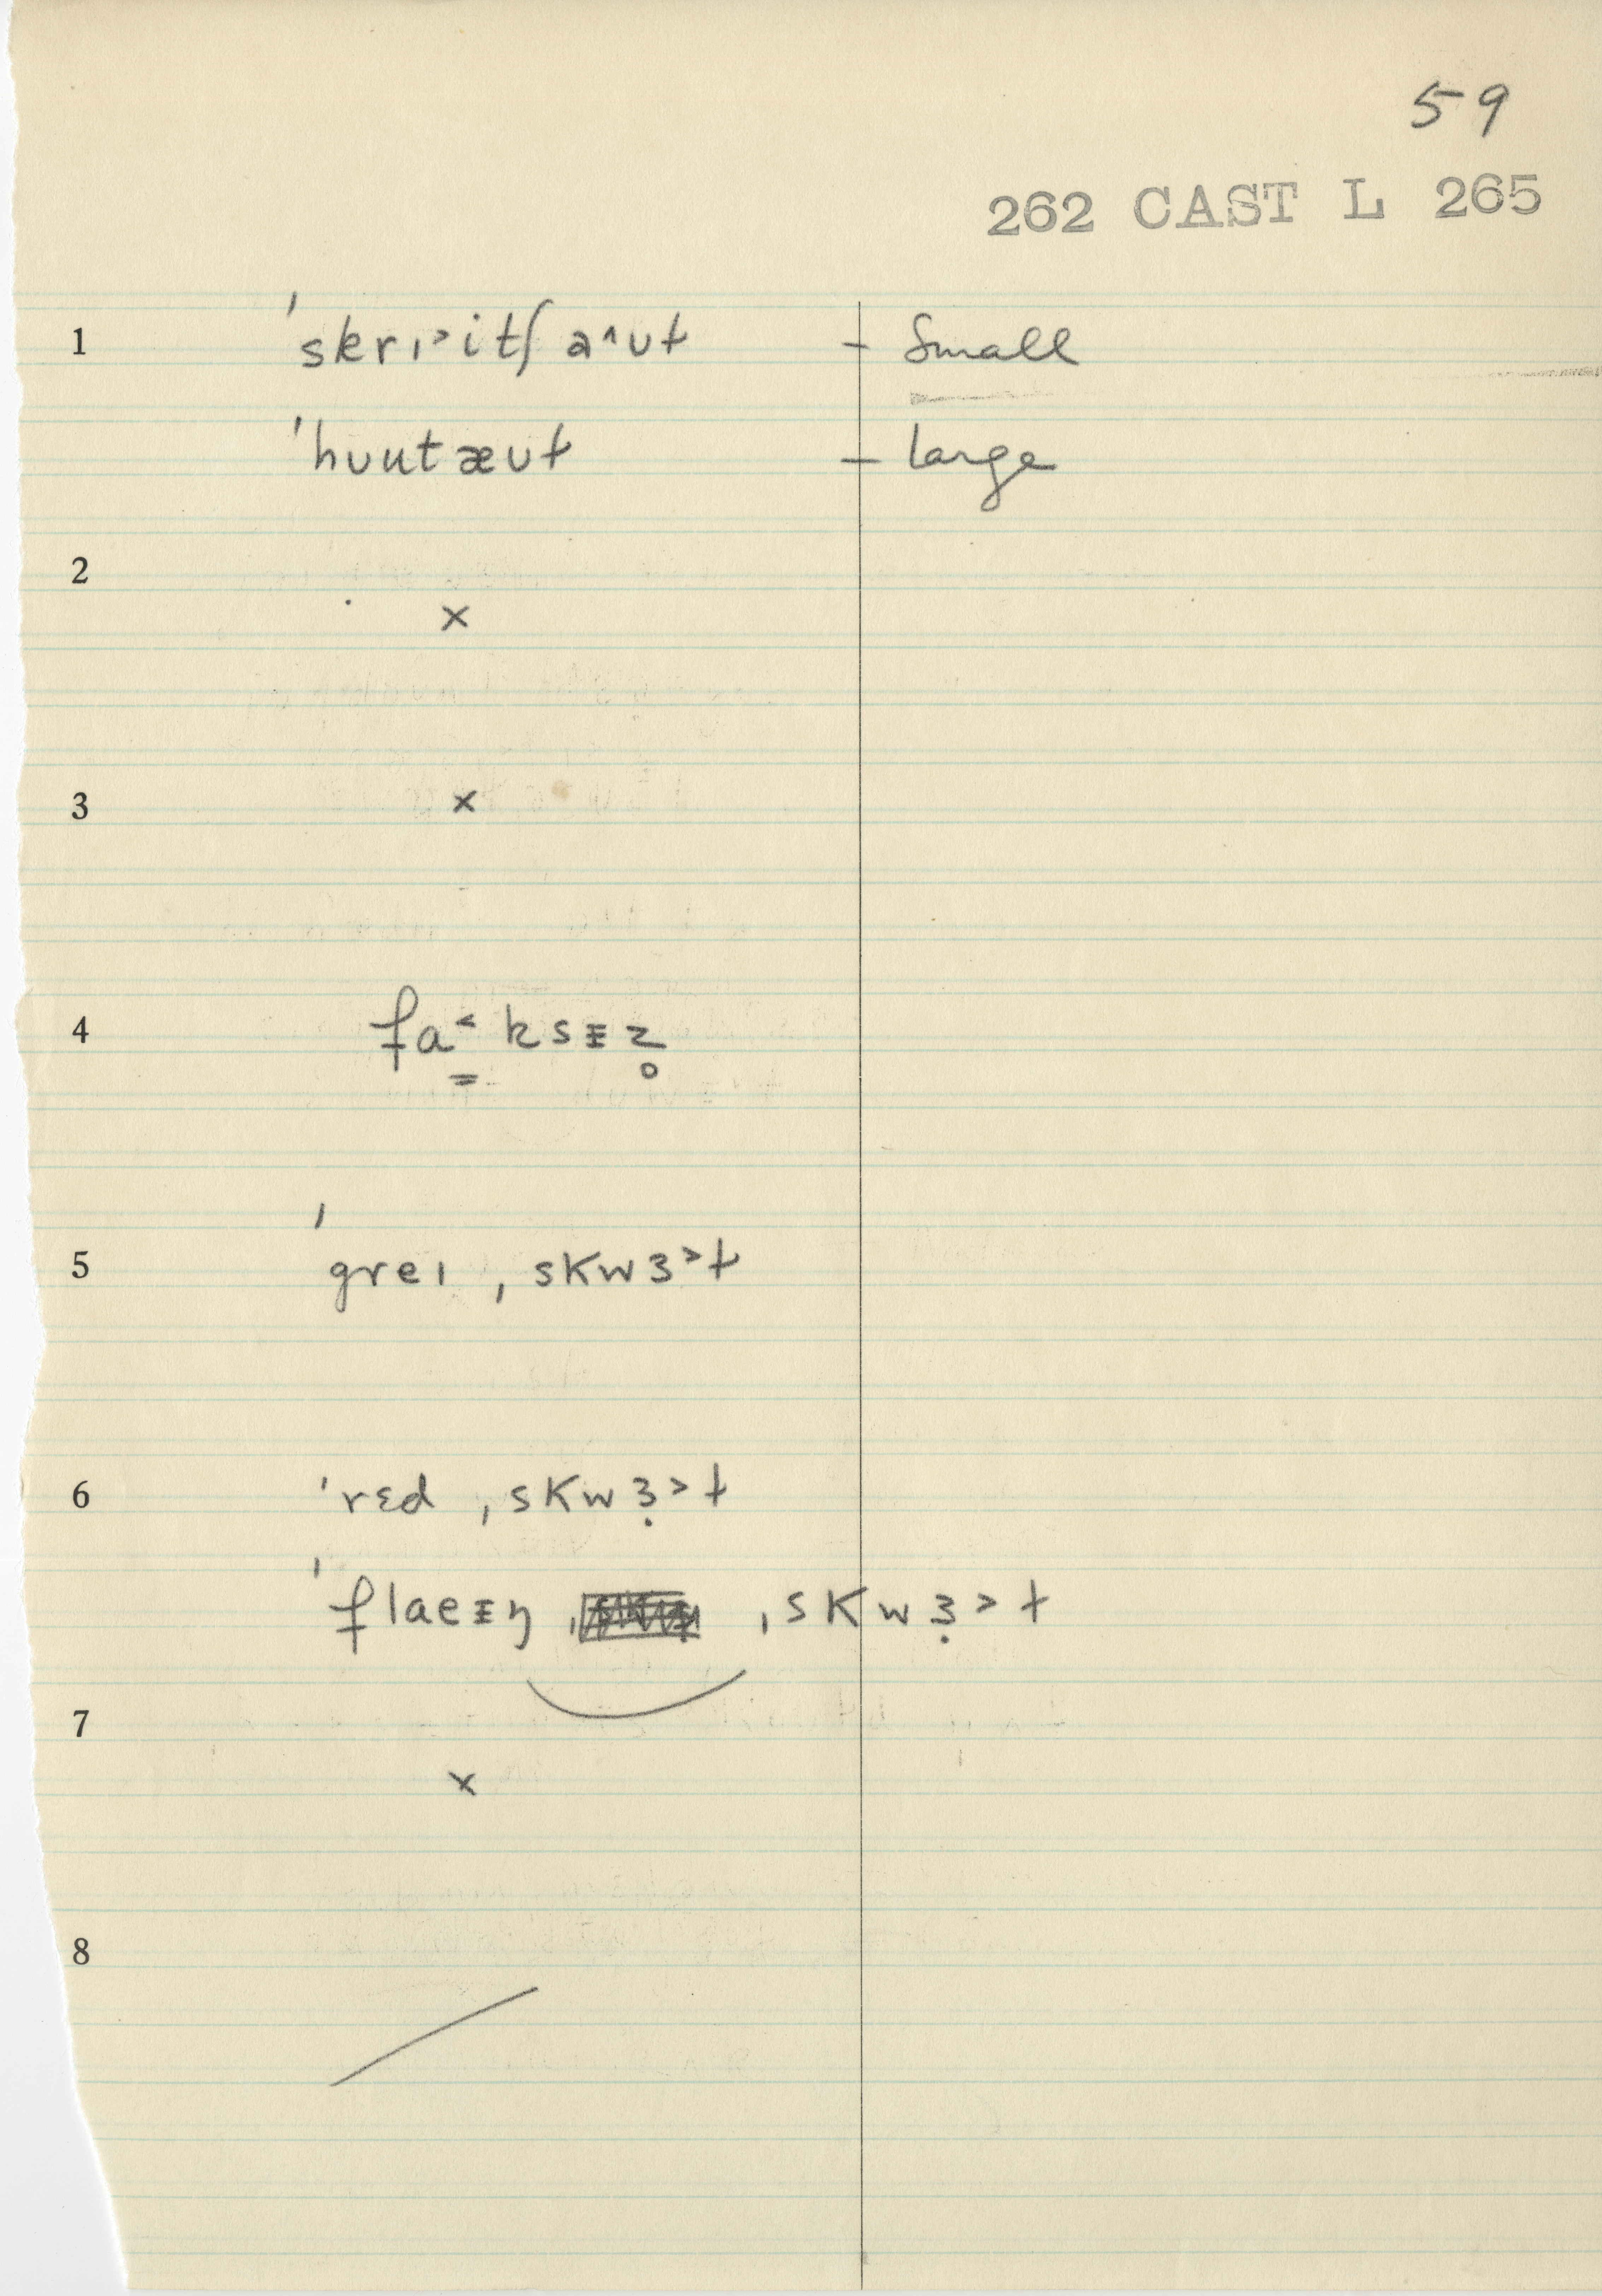 59
262 CAST L 265
1 ˈskrɪ˃itʃa˄ʊt – Small
ˈhʊutæʊt – large
2 ×
3 ×
4 fa˂ksɪz̥
5 ˈgreɪ ˌskwɜ˃t
6 ˈrɛd ˌskwɜ̣˃t
ˈflaeɪŋ ˌskwɜ̣˃t
7 ×
8